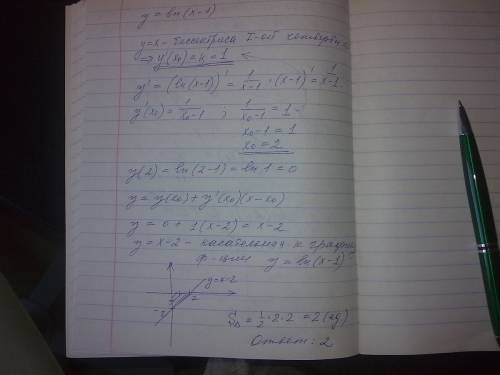 y = ln(x-1)
y=x - биссектриса I-ой четверти
⇒ y'(x₀) = k = 1
y' = (ln(x-1))' = 1/(x-1) · (x-1)' = 1/(x-1)
y'(x₀) = 1/(x₀-1) ; 1/(x₀-1) = 1
x₀-1 = 1
x₀ = 2
y(2) = ln(2-1) = ln 1 = 0
y = y(x₀) + y'(x₀)(x-x₀)
y = 0 + 1(x-2) = x-2
y = x-2 - касательная к графику
ф-ции y = ln(x-1)
y=x-2
2
-2
S = 1/2 · 2 · 2 = 2
Ответ: 2